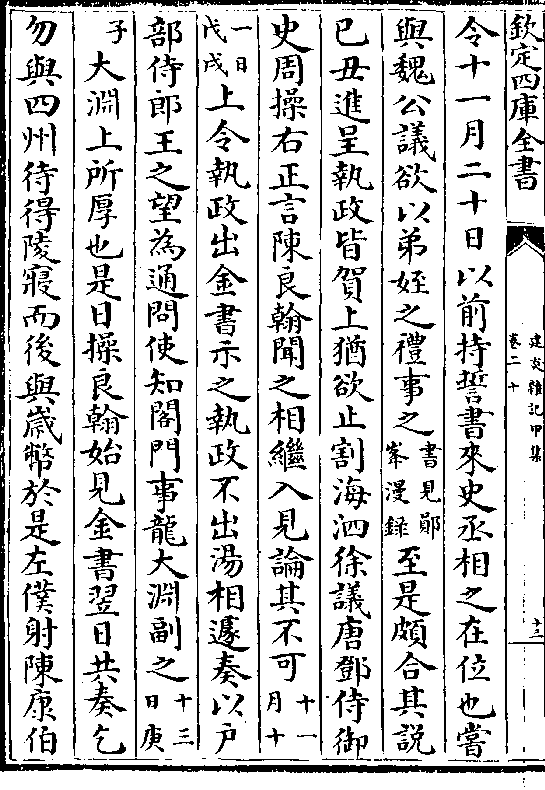 欽定四庫全書
建炎雜記甲集
卷二十
十三
令十一月二十日以前持誓書來史丞相之在位也嘗
與魏公議欲以弟姪之禮事之書見鄖峯漫録至是頗合其説
已丑進呈執政皆賀上猶欲止割海泗徐議唐鄧侍御
史周操右正言陳良翰聞之相繼入見論其不可十一月十
一日戊戌上令執政出金書示之執政不出湯相遽奏以户
部侍郎王之望為通問使知閤門事龍大淵副之十三日庚
子大淵上所厚也是日操良翰始見金書翌日共奏乞
勿與四州待得陵寢而後與歲幣於是左僕射陳康伯